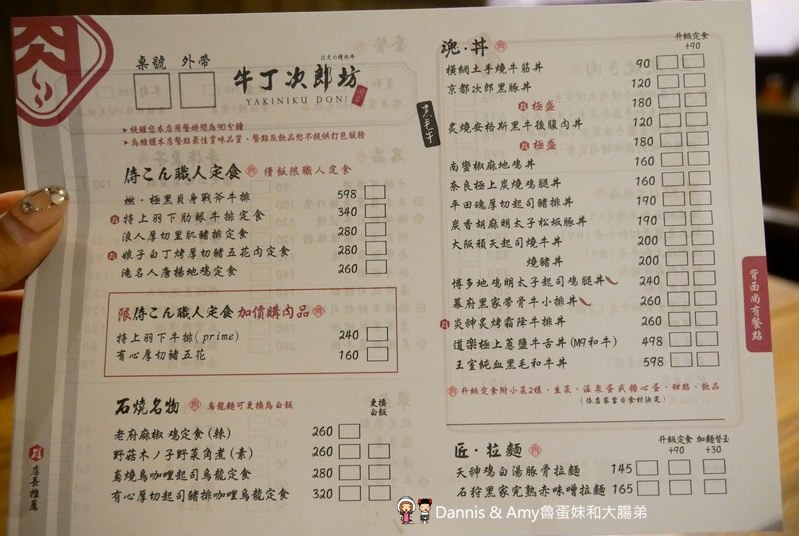 桌號 外帶
牛丁次郎坊
YAKINIKU DON!
▸提醒您本店用餐時間為90分鐘
▸為維護本店餐點最佳賞味品質、餐點及飲品恕不提供打包服務
侍こん職人定食 續飯限職人定食
燃‧極黑貝身戰斧牛排 598
特上羽下肋眼牛排定食 340
浪人厚切里肌豬排定食 280
娘子白丁烤厚切豬五花肉定食 280
滝名人唐揚地鳮定食 260
限侍こん職人定食 加價購肉品
特上羽下牛排(prime) 240
有心厚切豬五花 160
石燒名物 烏龍麵可更換為白飯
更換
白飯
老府麻椒 鳮定食(辣) 260
野菇木ノ子野菜角煮(素) 260
鳥燒鳥咖哩起司烏龍定食 280
有心厚切起司豬排咖哩烏龍定食 320
店長推薦
黑毛牛
魂‧丼
升級定食
+90
橫綱土手燒牛筋丼 90
京都次郎黑豚丼 120
極盛 180
炙燒安格斯黑牛後腹肉丼 120
極盛 180
南蠻椒麻地鳮丼 160
奈良極上炭燒鳮腿丼 160
平田瑰厚切起司豬排丼 190
炭香胡麻明太子松坂豚丼 190
大阪頑天起司燒牛丼 200
燒豬丼 200
博多地鳮明太子起司鳮腿丼 240
幕府黑家帶骨牛小排丼 260
炎神炙烤霜降牛排丼 260
道樂極上蔥鹽牛舌丼(M9和牛) 498
王室純血黑毛和牛丼 598
升級定食附小菜2樣、生菜、溫泉蛋或糖心蛋、甜點、飲品
(依店家當日食材決定)
背面尚有餐點
匠‧拉麵
升級定食 加麵替玉
+90 +30
天神鳮白湯豚骨拉麵 145
石狩黑家完熟赤味噌拉麵 165
Dannis & Amy魯蛋妹和大腸弟